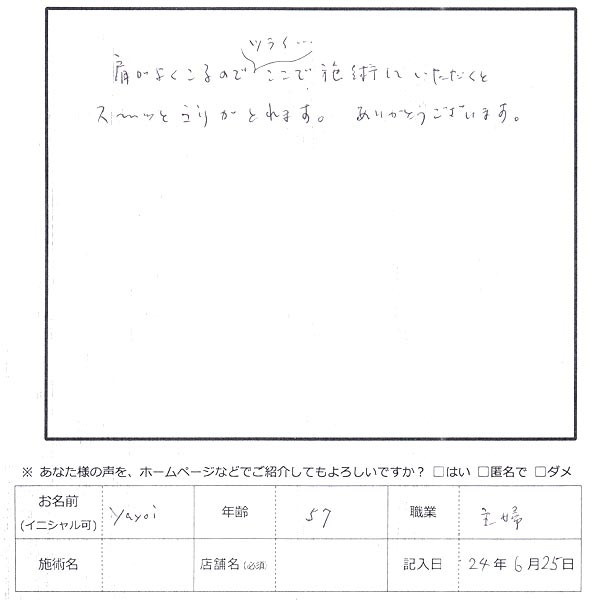 ツライ…
肩がよくこるのでここで施術していただくと
スーッとこりがとれます。 ありがとうございます。
※ あなた様の声を、ホームページなどでご紹介してもよろしいですか？ □はい □匿名で □ダメ
お名前(イニシャル可) yayoi 年齢 57 職業 主婦
施術名 店舗名(必須) 記入日 24年6月25日